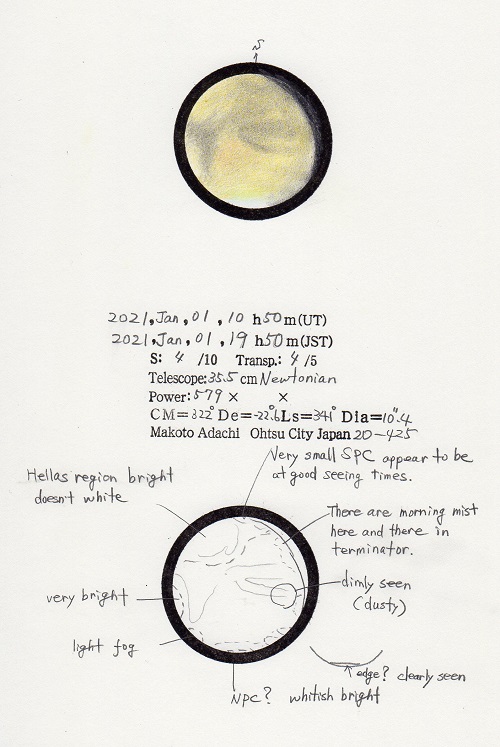 S
2021, Jan, 01, 10 h 50 m (UT)
2021, Jan, 01, 19 h 50 m (JST)
S: 4 /10 Transp.: 4 /5
Telescope: 35.5 cm Newtonian
Power: 579 × ×
CM=322° De=-22.6° Ls=341° Dia=10".4
Makoto Adachi Ohtsu City Japan 20-425
Very small SPC appear to be
at good seeing times.
Hellas region bright
doesn't white
There are morning mist
here and there in
terminator.
very bright
dimly seen
(dusty)
light fog
edge? clearly seen
NPC? whitish bright